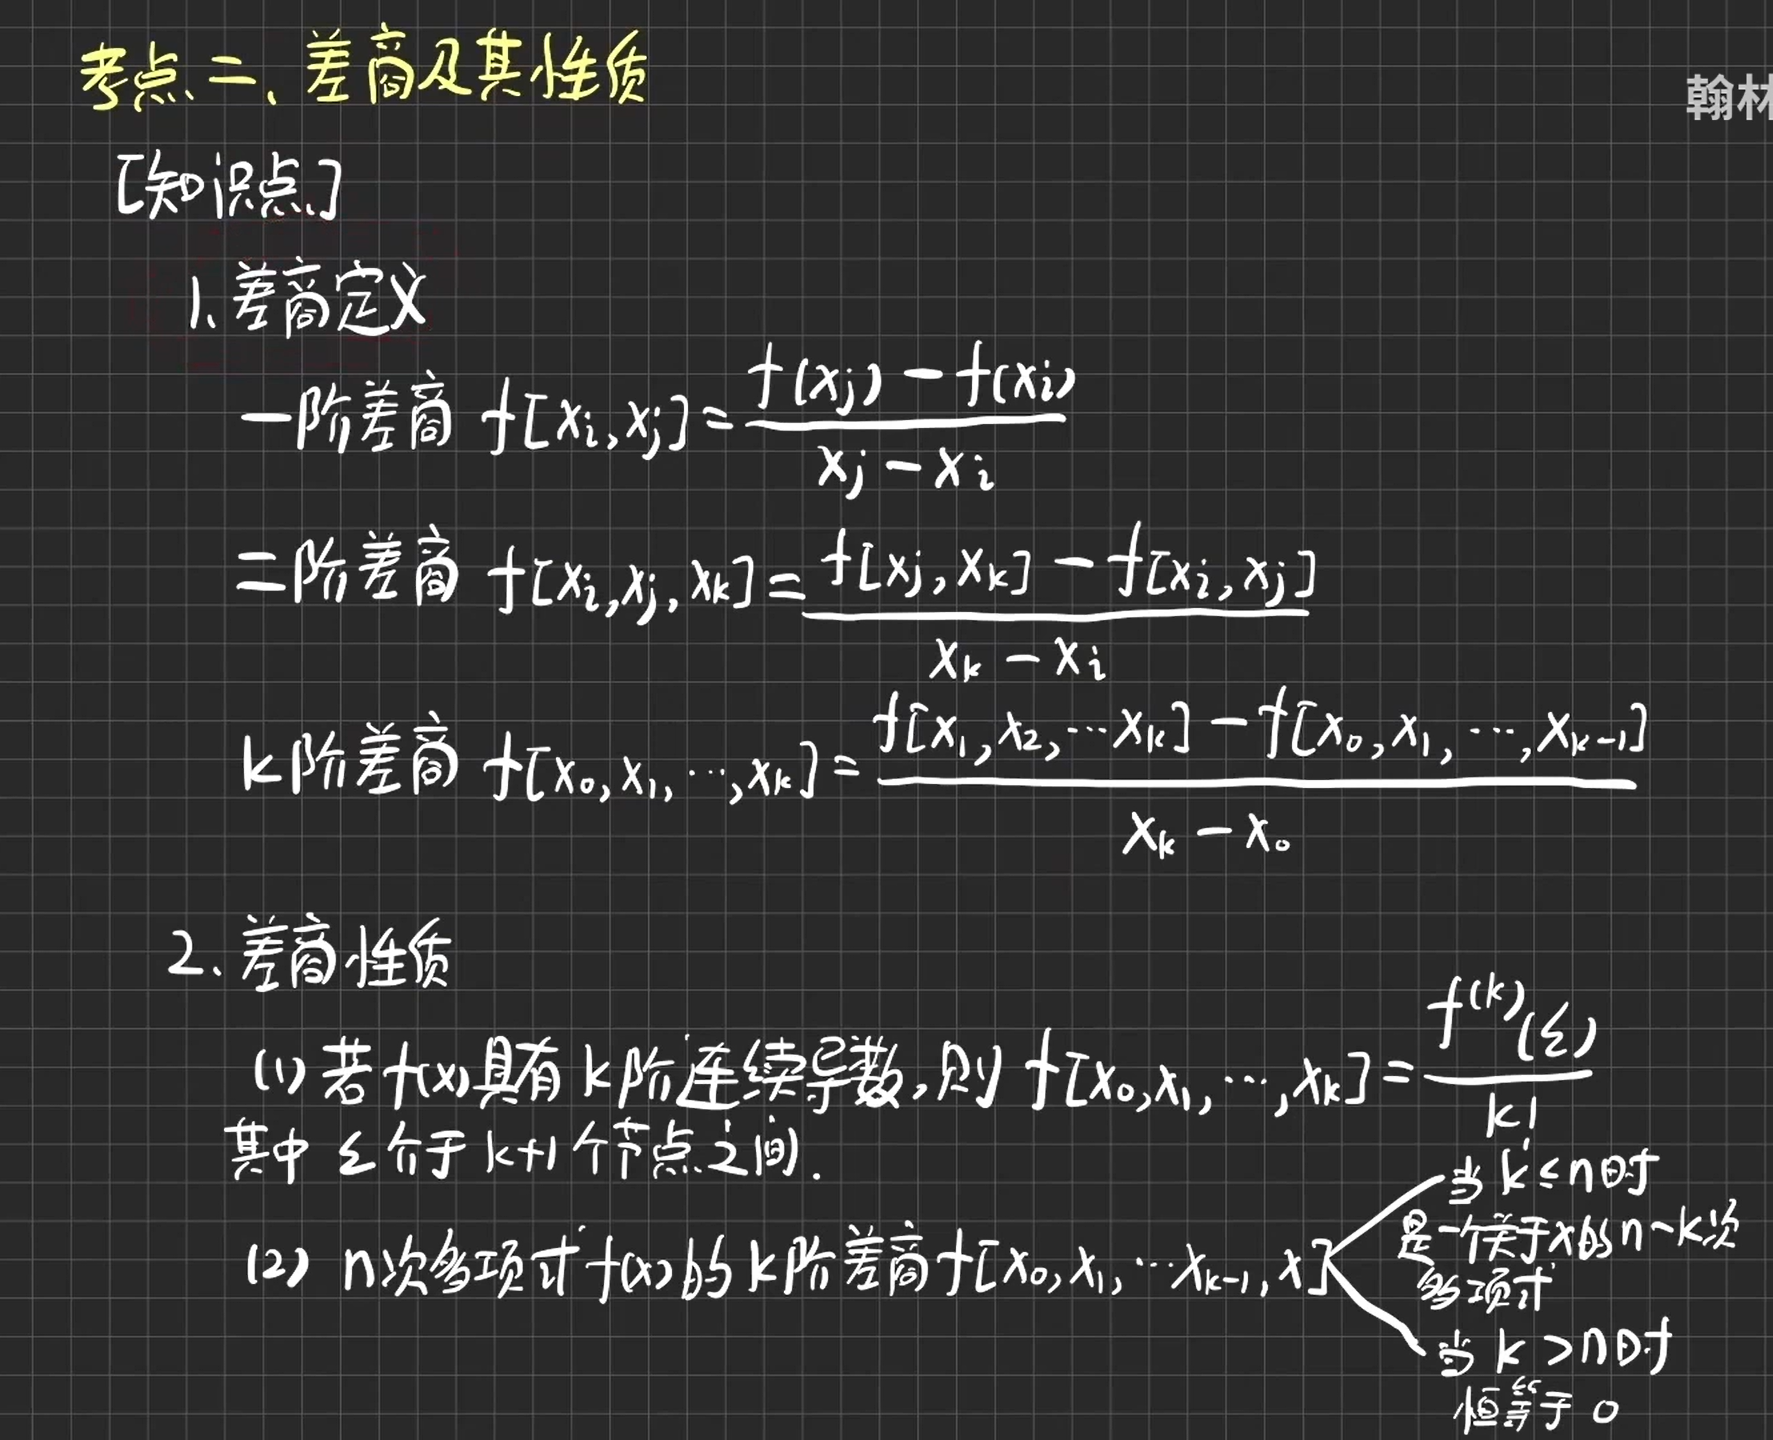 考点二、差商及其性质
翰林
[知识点]
1、差商定义
一阶差商 f[xi,xj]=(f(xj)-f(xi))/(xj-xi)
二阶差商 f[xi,xj,xk]=(f[xj,xk]-f[xi,xj])/(xk-xi)
k阶差商 f[x₀,x₁,…,xk]=(f[x₁,x₂,…xk]-f[x₀,x₁,…,xk-1])/(xk-x₀)
2、差商性质
(1) 若f(x)具有k阶连续导数,则 f[x₀,x₁,…,xk]=f⁽ᵏ⁾(ξ)/k!
其中 ξ介于k+1个节点之间.
(2) n次多项式f(x)的k阶差商f[x₀,x₁,…xk-1,x]
当k≤n时
是一个关于x的n-k次
多项式
当k>n时
恒等于0